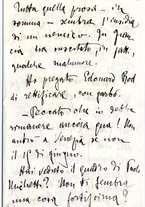 Tutta quella prosa – in
somma – sembra l'insidia
di un nemico. In Fran-
cia ha suscitato, in fatti,
qualche malumore.
Ho pregato Edouard Rod
di rettificare, con garbo.
– Peccato che io debba
rimanere ancora qua! Non
antivo a Venezia se non
il 1º di giugno.
Hai veduto il quadro di Paolo
Michetti? Non ti sembra
una cosa fortissima?